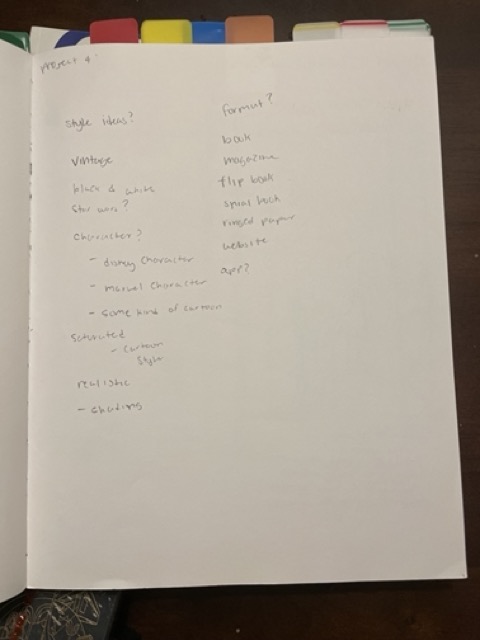 project 4
style ideas?
vintage
black & white
star wars?
character?
- disney character
- marvel character
- some kind of cartoon
saturated
- cartoon
style
realistic
- shading
format?
book
magazine
flip book
spiral book
ringed paper
website
app?